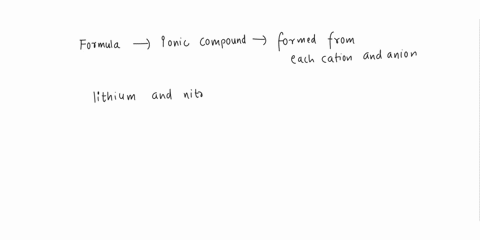 Formula → Ionic compound → formed from
each cation and anion
lithium and nit